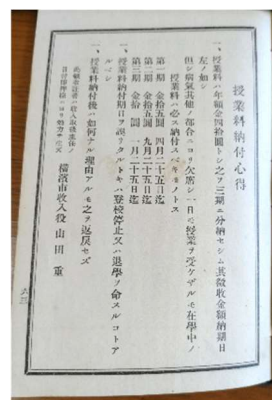 授業料納付心得
一、授業料ハ年額金四拾圓トシ之ヲ三期ニ分納セシム其徴收金額納期日
左ノ如シ
但シ病氣其他ノ都合ニヨリ欠席シ一日モ授業ヲ受ケザルモ在學中ノ
授業料ハ必ス納付スベキモノトス
第一期 金拾五圓 四月二十五日迄
第二期 金拾五圓 九月二十五日迄
第三期 金拾圓 一月二十五日迄
一、授業料納付期日ヲ誤リタルトキハ登校停止又ハ退學ヲ命スルコトア
ルベシ
一、授業料納付後ハ如何ナル理由アルモ之ヲ返戻セズ
横濱市收入役 山田 重